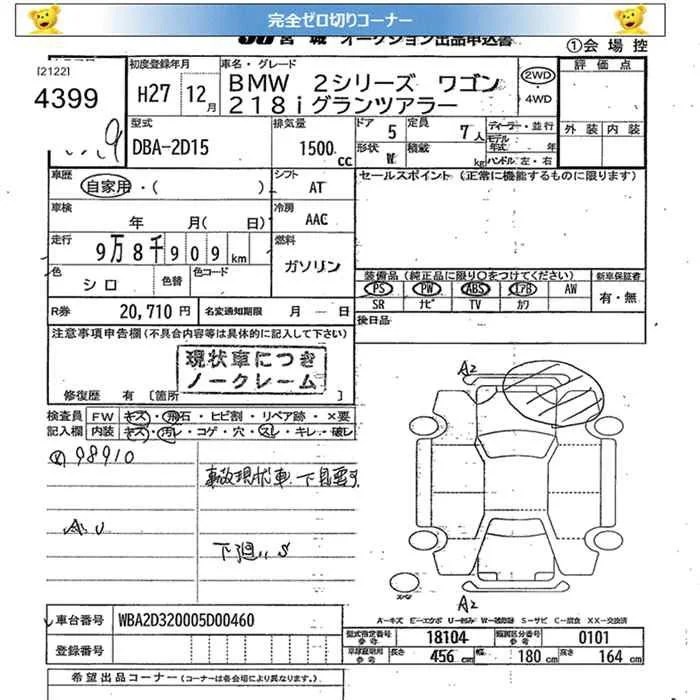 完全ゼロ切りコーナー
JU宮城 オークション出品申込書
①会場控
[2122]
4399
初度登録年月
H27 12月
車名・グレード
BMW 2シリーズ ワゴン
218iグランツアラー
2WD
・4WD
評価点
外装 内装
型式
DBA-2D15
排気量
1500cc
ドア 5
定員 7人
形状 W
積載 kg
ディーラー・並行
モデル年式 年
ハンドル 左・右
車歴
自家用・( )
シフト
AT
セールスポイント (正常に機能するものに限ります)
車検
年 月( 日)
冷房
AAC
走行
9万8千909km
燃料
ガソリン
色
シロ
色替
色コード
装備品 (純正品に限り○をつけてください)
新車保証書
PS PW ABS エアB AW
有・無
SR ナビ TV カワ
R券
20,710円
名変通知期限 月 ― 日
後日品
注意事項申告欄 (不具合内容等は具体的に記入して下さい)
現状車につき
ノークレーム
修復歴 有 [箇所 ]
検査員 FW キズ・飛石・ヒビ割・リペア跡・×要
記入欄 内装 キズ・汚レ・コゲ・穴・スレ・キレ・破レ
98910
事故現状車 下見要す
A U
下廻りS
A2
A2
A―キズ E―エクボ U―凹み W―補修跡 S―サビ C―腐食 XX―交換済
車台番号 WBA2D320005D00460
登録番号
型式指定番号 参考 18104
類別区分番号 参考 0101
車線証明用 参考
長さ 456cm 幅 180cm 高さ 164cm
希望出品コーナー (コーナーは各会場により異なります。)